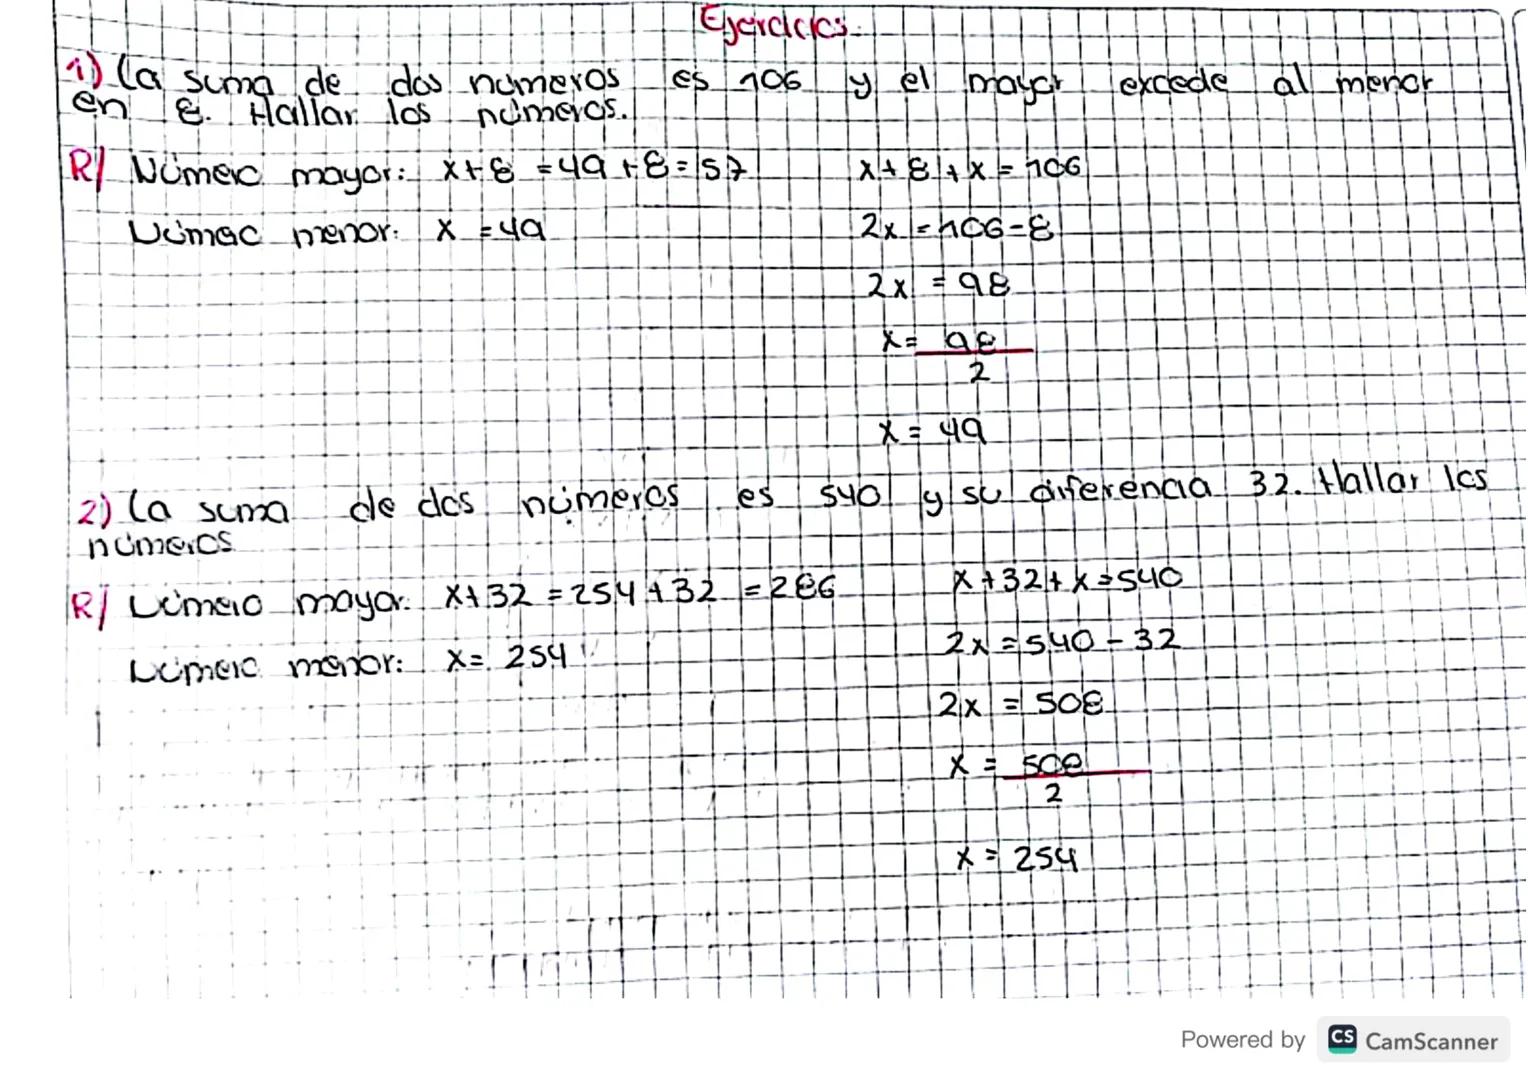 Ejercicios.
1) La suma de dos números es 106 y el mayor excede al menor
en 8. Hallar los números.
R/ Número mayor: x+8 = 49 + 8 = 57
x + 8 + x = 106
Número menor: x = 49
2x = 106 - 8
2x = 98
x = 98
2
x = 49
2) La suma de dos números es 540 y su diferencia 32. Hallar los
números
R/ Número mayor: x+32 = 254 + 32 = 286
x + 32 + x = 540
Número menor: x = 254
2x = 540 - 32
2x = 508
x = 508
2
x = 254
Powered by CS CamScanner